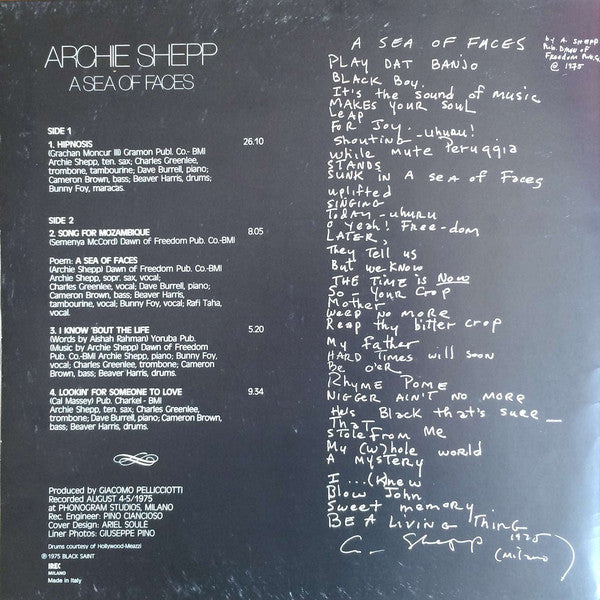 ARCHIE SHEPP
A SEA OF FACES
SIDE 1
1. HIPNOSIS 26:10
(Grachan Moncur III) Gramon Publ. Co.- BMI
Archie Shepp, ten. sax; Charles Greenlee,
trombone, tambourine; Dave Burrell, piano;
Cameron Brown, bass; Beaver Harris, drums;
Bunny Foy, maracas.
SIDE 2
2. SONG FOR MOZAMBIQUE 8.05
(Semenya McCord) Dawn of Freedom Pub. Co.-BMI
Poem: A SEA OF FACES
(Archie Shepp) Dawn of Freedom Pub. Co.-BMI
Archie Shepp, sopr. sax, vocal;
Charles Greenlee, vocal; Dave Burrell, piano;
Cameron Brown, bass; Beaver Harris,
tambourine, vocal; Bunny Foy, vocal; Rafi Taha,
vocal.
3. I KNOW 'BOUT THE LIFE 5.20
(Words by Aishah Rahman) Yoruba Pub.
(Music by Archie Shepp) Dawn of Freedom
Pub. Co.-BMI Archie Shepp, piano; Bunny Foy,
vocal; Charles Greenlee, trombone; Cameron
Brown, bass; Beaver Harris, drums.
4. LOOKIN' FOR SOMEONE TO LOVE 9.34
(Cal Massey) Pub. Charkel - BMI
Archie Shepp, ten. sax; Charles Greenlee,
trombone; Dave Burrell, piano; Cameron Brown,
bass; Beaver Harris, drums.
Produced by GIACOMO PELLICCIOTTI
Recorded AUGUST 4-5/1975
at PHONOGRAM STUDIOS, MILANO
Rec. Engineer: PINO CIANCIOSO
Cover Design: ARIEL SOULÉ
Liner Photos: GIUSEPPE PINO
Drums courtesy of Hollywood-Meazzi
℗ 1975 BLACK SAINT
IREC
MILANO
Made in Italy
A SEA OF FACES
by A. SHEPP
Pub. DAWN OF
Freedom Pub. Co.
© 1975
PLAY DAT BANJO
BLACK Boy.
It's the sound of music
MAKES YOUR SOUL
LEAP
FOR Joy.
Shouting -uhuru!
while mute Peruggia
STANDS
SUNK IN A SEA of FACES
uplifted
SINGING
TODAY -uhuru
o yeah! Free-dom
LATER,
They Tell us
But we know
THE TIME is Now
So - Your Crop
Mother
weep no more
Reap thy bitter crop
My Father
HARD Times will soon
Be o'er
RHYME POME
NIGGER AIN'T NO MORE
He's Black that's sure_
THAT
STOLE FROM Me
My (w)hole world
A MYSTERY
I...(k)new
Blow John
Sweet memory.
BE A LIVING THING
Shepp 1975
(Milano)